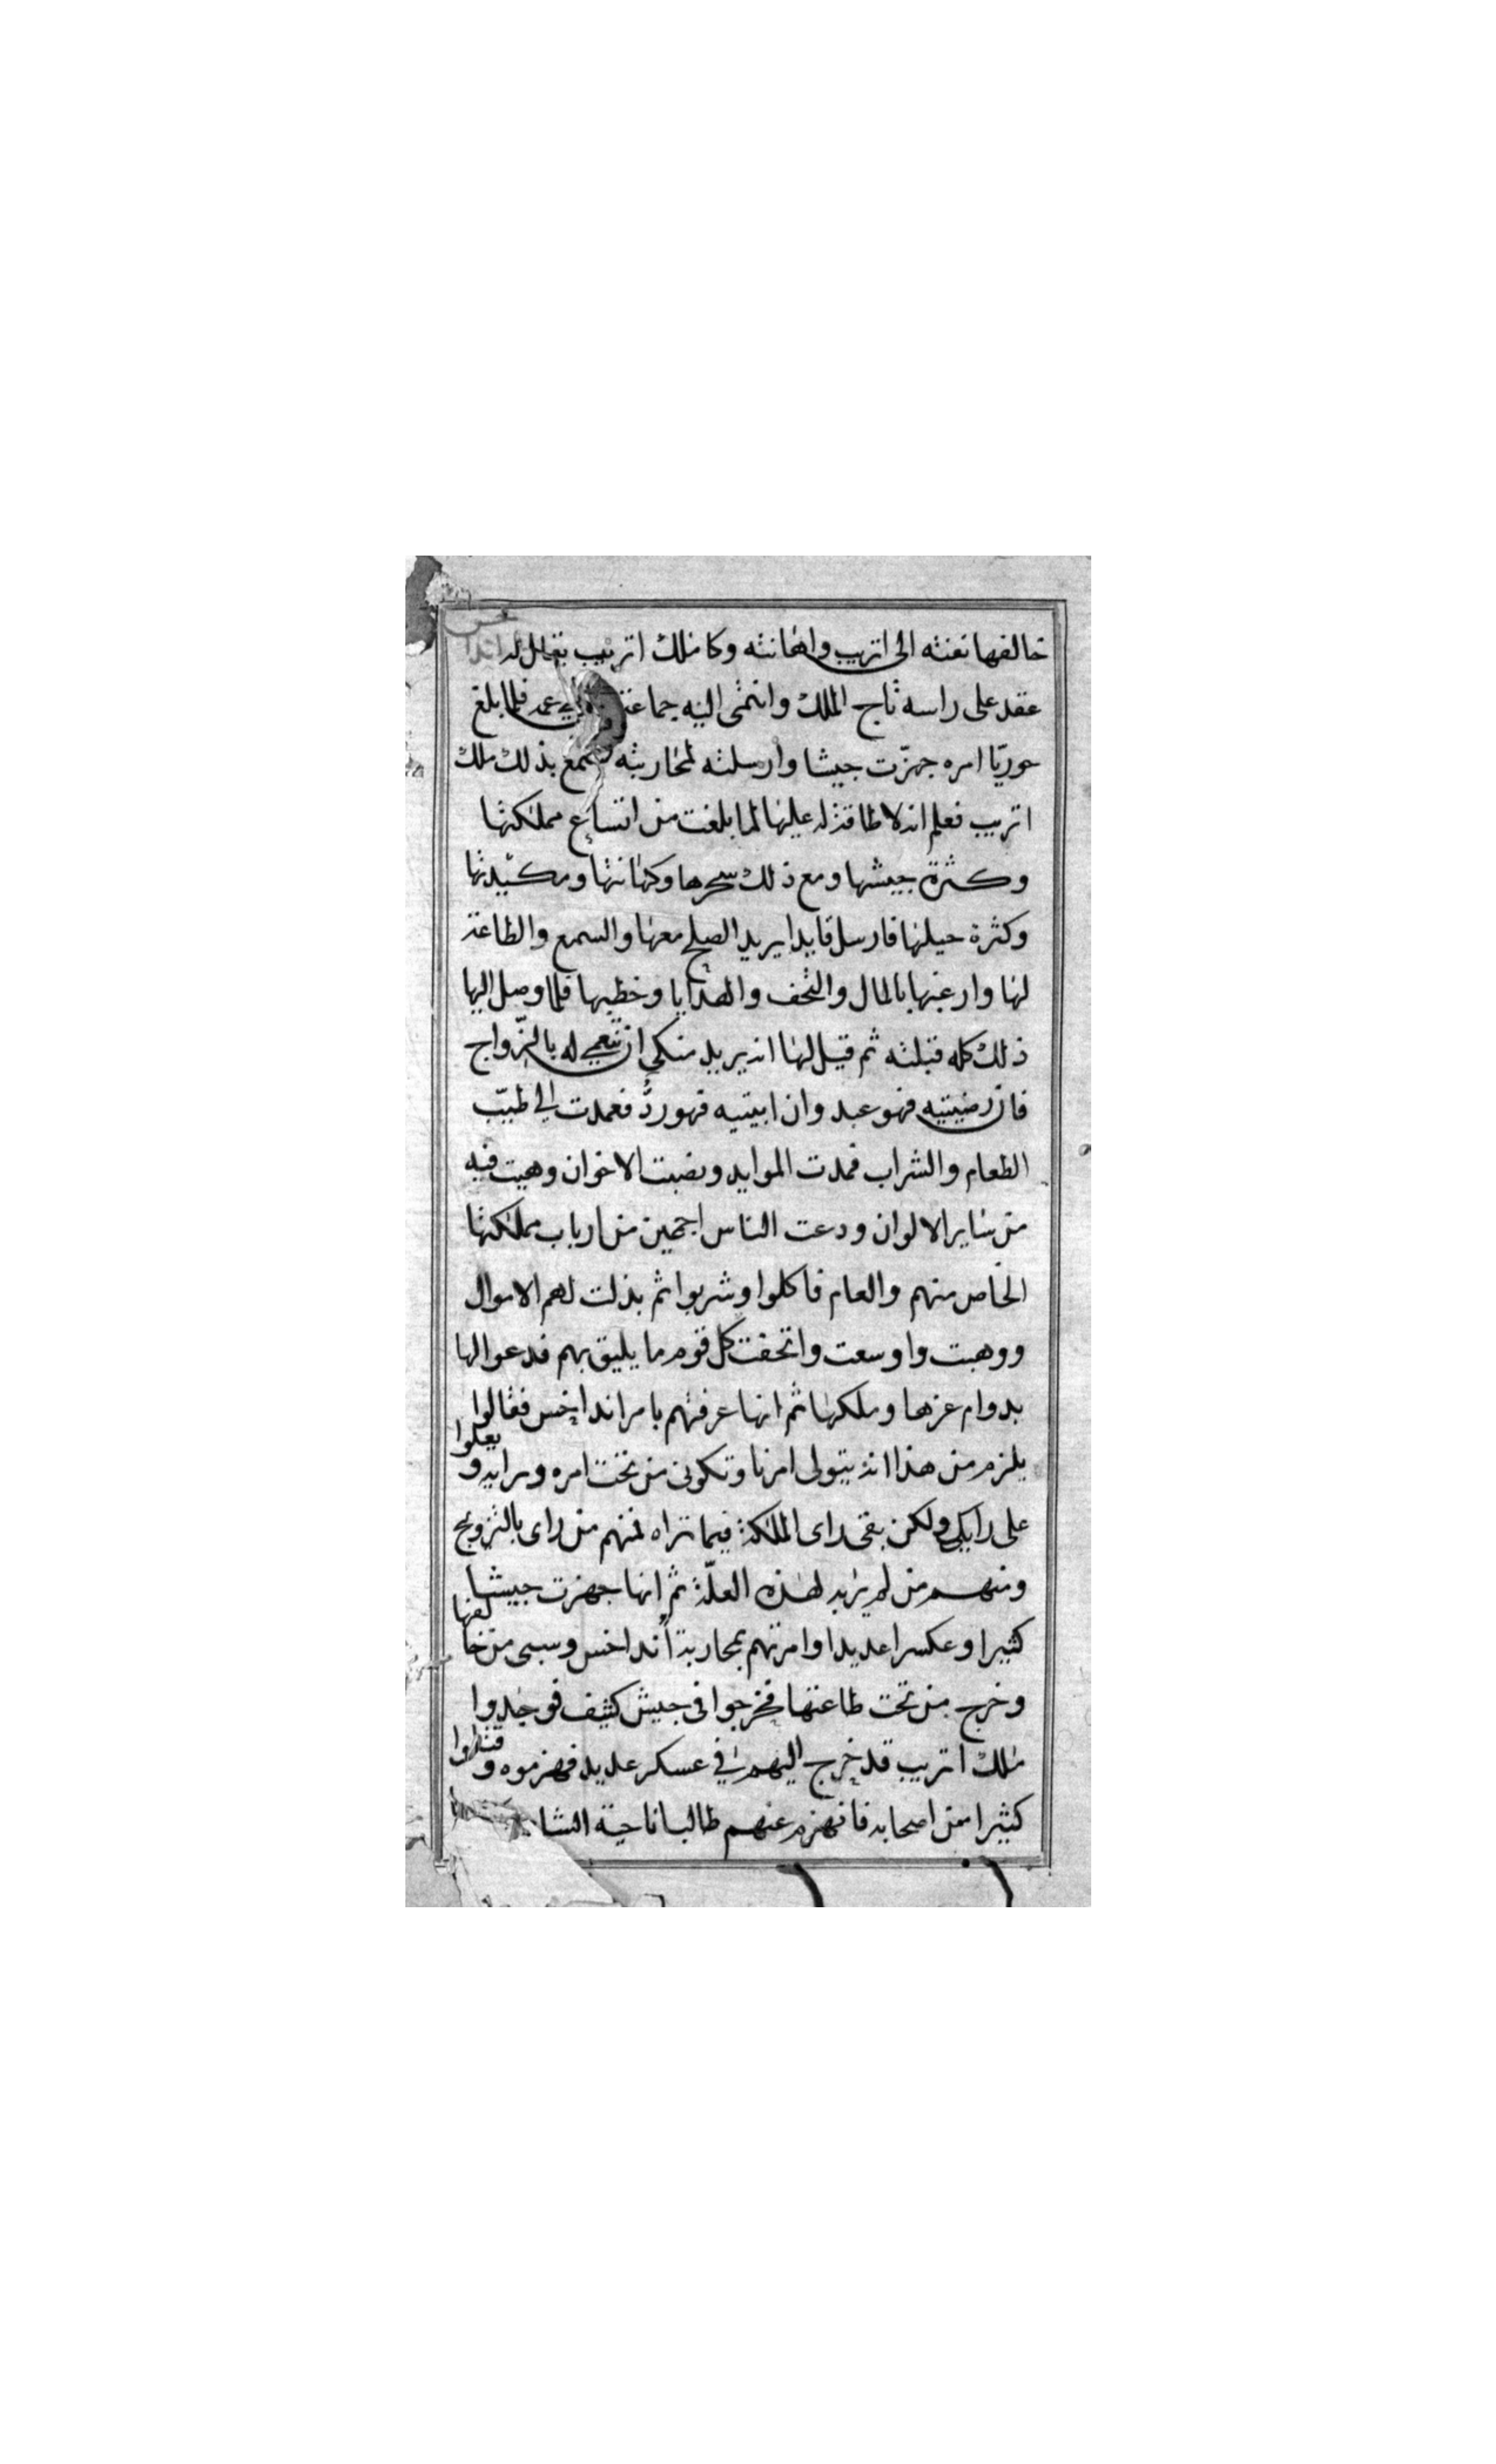 خالفها نفته الى اتريب واهانته وكا ملك اتريب يقال له اندا
عقد على راسه تاج الملك وانتمى اليه جماعة عمه فلما بلغ
حوريّا امره جهزّت جيشا وارسلته لمحاربته فسمع بذلك ملك
اتريب فعلم انه لا طاقة له عليها لما بلغت من اتساع مملكتها
وكثرة جيشها ومع ذلك سحرها وكهانتها ومكيدتها
وكثرة حيلها فارسل قايدا يريد الصلح معها والسمع والطاعة
لها وارغبها بالمال والتحف والهدايا وخطبها فلما وصل اليها
ذلك كله قبلته ثم قيل لها انه يريد منكي ان تنعمي له بالزّواج
فان رضيتيه فهو عبد وان ابيتيه فهو ردُّ فعمدت الى طيبّ
الطعام والشراب فمدت الموايد ونصبت الاخوان وهيت فيه
من ساير الالوان ودعت الناس اجمعين من ارباب مملكتها
الخاص منهم والعام فاكلوا وشربوا ثم بذلت لهم الاموال
ووهبت واوسعت واتحفت كل قوم ما يليق بهم فدعوا لها
بدوام عزها وملكها ثم انها عرفتهم بامر انداخس فقالوا
يلزم من هذا انه يتولى امرنا وتكونى من تحت امره ورايه ويعلوا
على رايكي ولكن بقى راى الملكة فيما تراه فمنهم من راى بالتزويج
ومنهم من لم يريد لهذه العلّة ثم انها جهزت جيشا
كثيرا وعكسرا عديدا وامرتهم بمحاربة انداخس وسبى من خالفها
وخرج من تحت طاعتها فخرجوا فى جيش كثيف فوجدوا
ملك اتريب قد خرج اليهم في عسكر عديد فهزموه وقتلوا
كثيرا من اصحابه فانهزم عنهم طالبا ناحية الشا